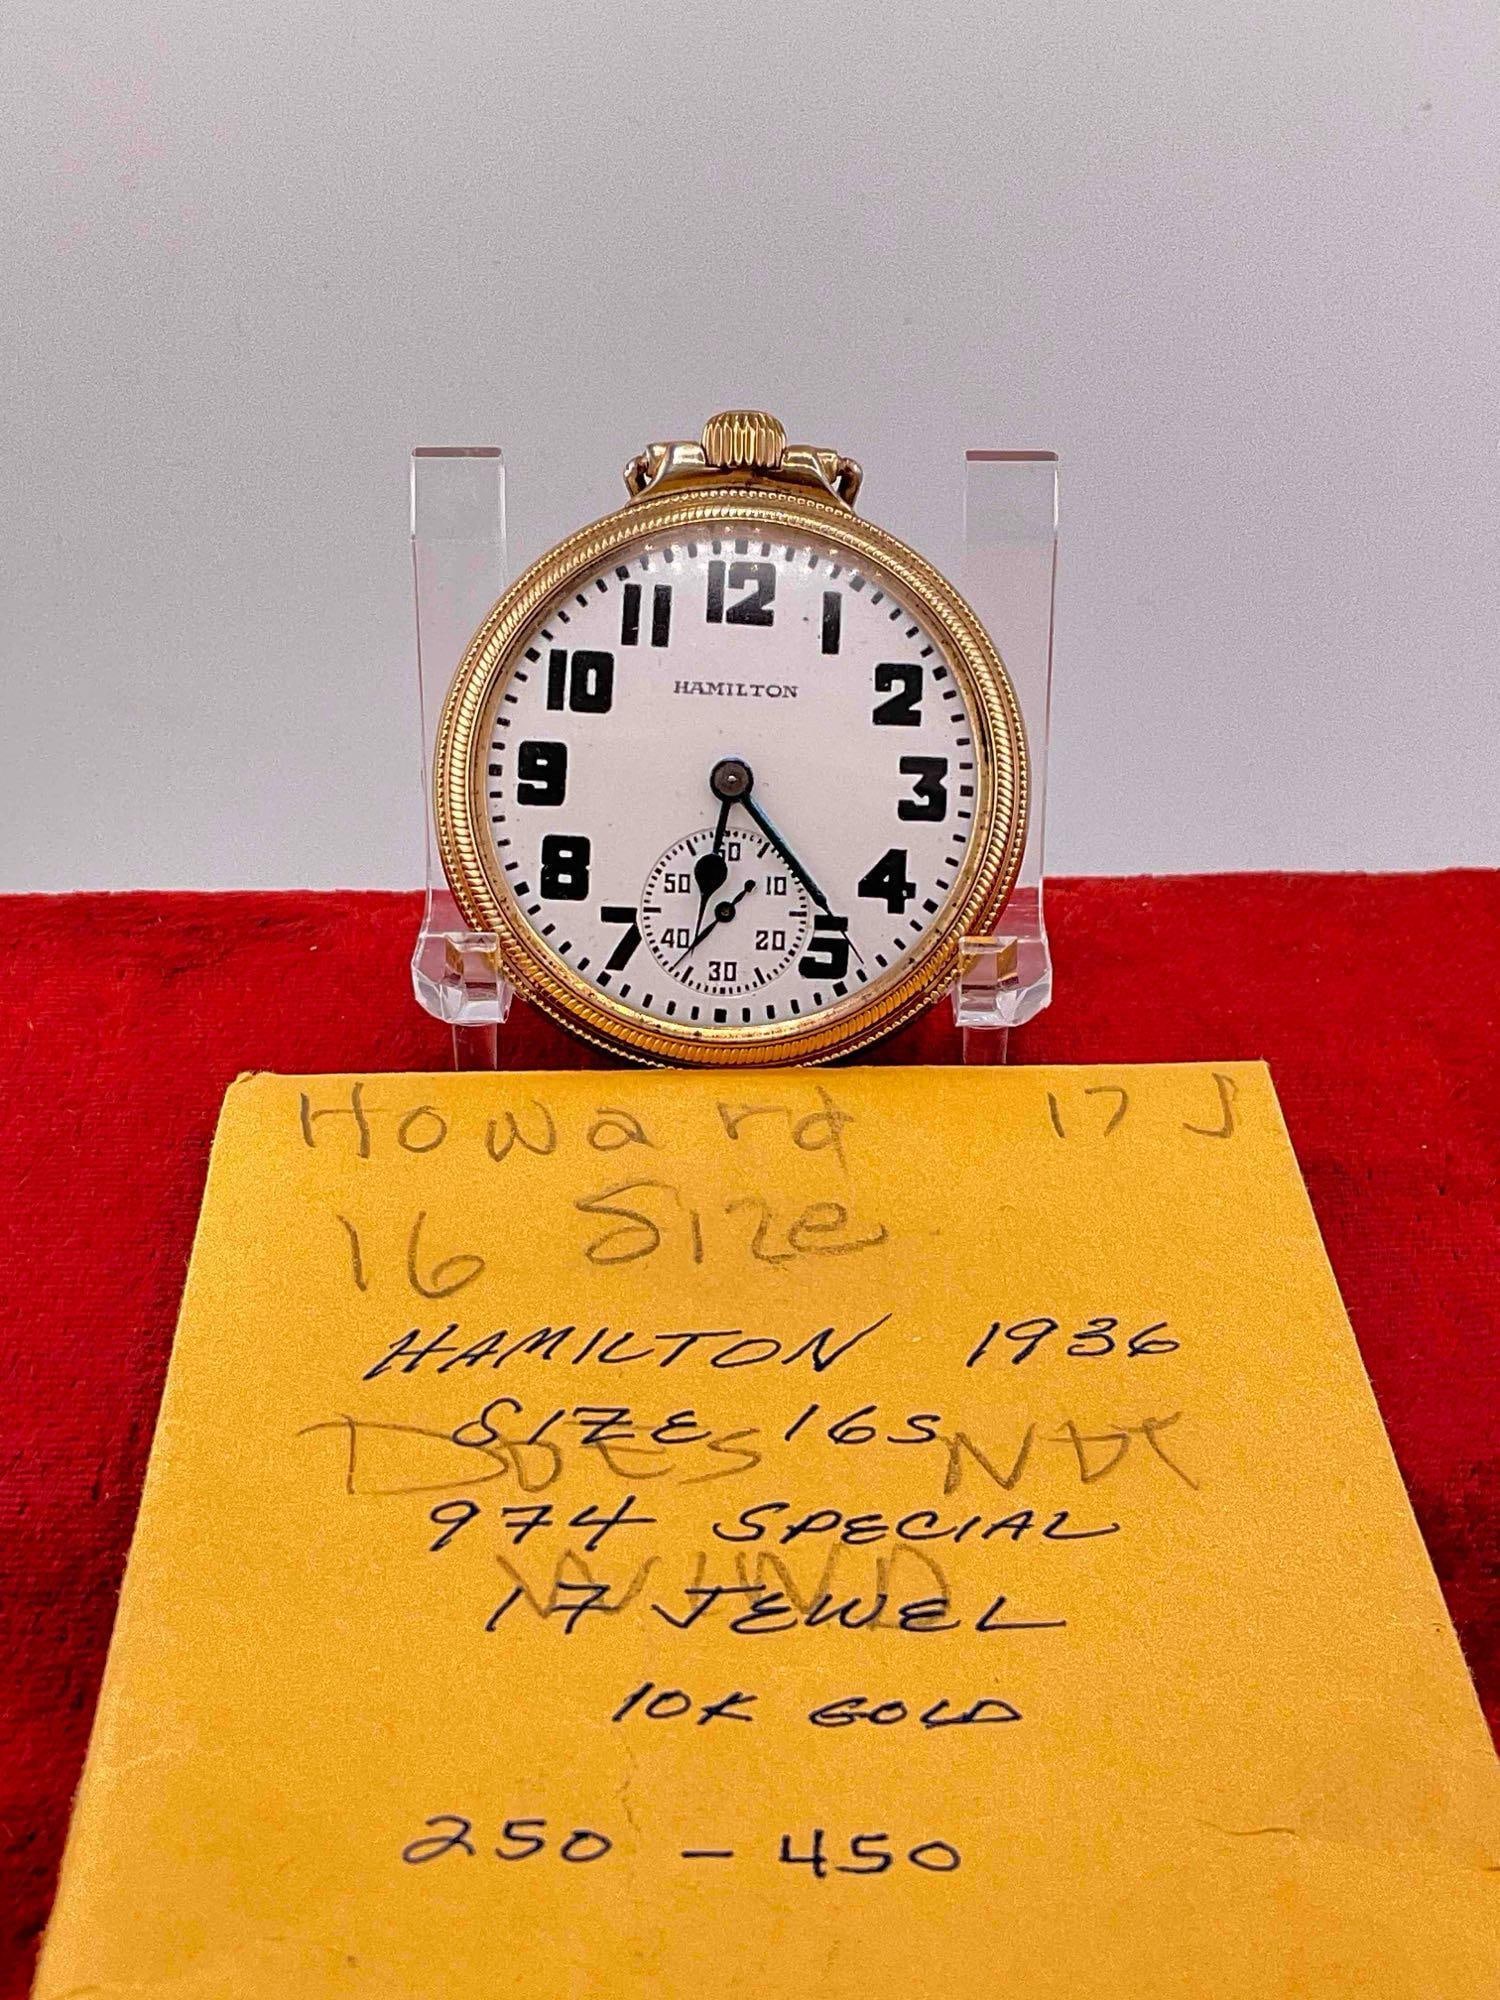 12
11 1
10 2
HAMILTON
9 3
8 4
7 5
60
50 10
40 20
30
Howard 17 J
16 Size
HAMILTON 1936
SIZE 16S
DOES NOT
974 SPECIAL
WIND
17 JEWEL
10K GOLD
250 - 450